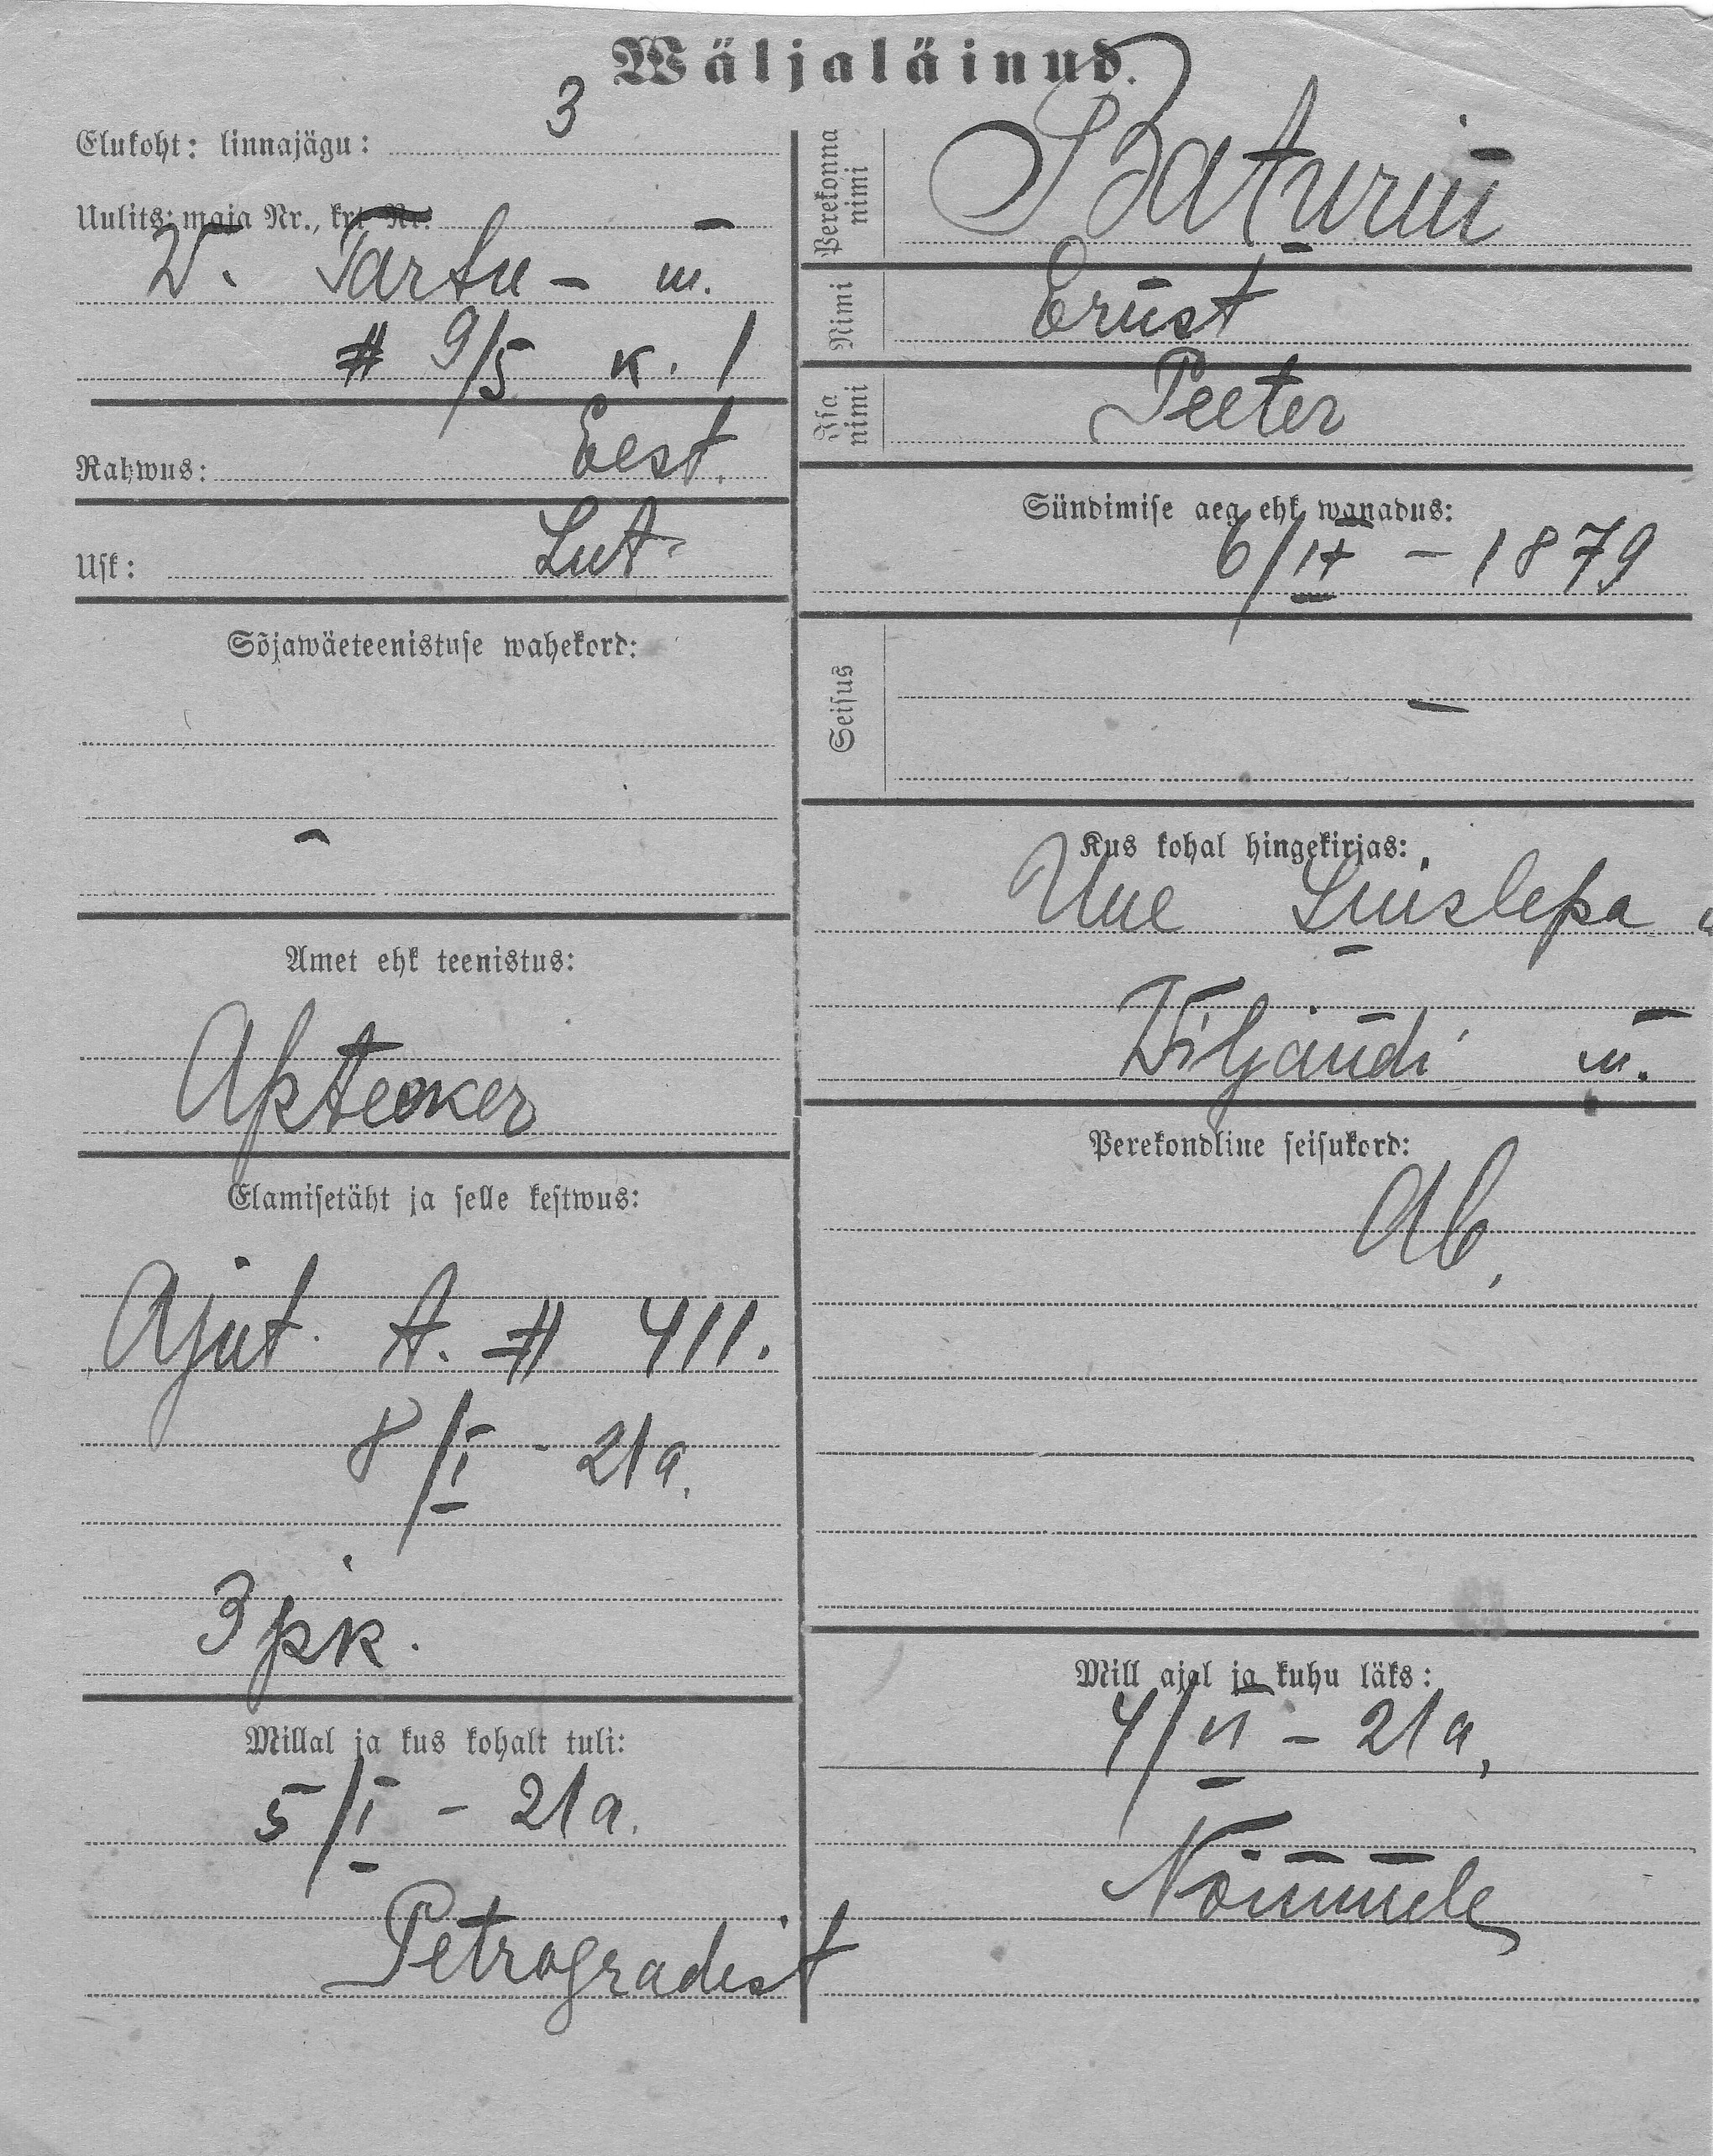 Wäljaläinud.
Elukoht: linnajägu: 3
Uulits: maja Nr., krt Nr.
W. Tartu – m.
# 9/5 K. 1
Rahwus: Eest.
Usk: Lut.
Sõjawäeteenistuse wahekord:
–
Amet ehk teenistus:
Apteeker
Elamisetäht ja selle kestwus:
Ajut. t. # 411.
8/I - 21 a.
3 pk.
Millal ja kus kohalt tuli:
5/I – 21 a.
Petrogradist
Perekonna nimi
Baturin
Nimi
Ernst
Isa nimi
Peeter
Sündimise aeg ehk wanadus:
– 1879
Seisus
–
Kus kohal hingekirjas:
Uue Suislepa
Wiljandi m.
Perekondline seisukord:
Ab.
Mill ajal ja kuhu läks:
4/VI – 21 a.
Nõmmele